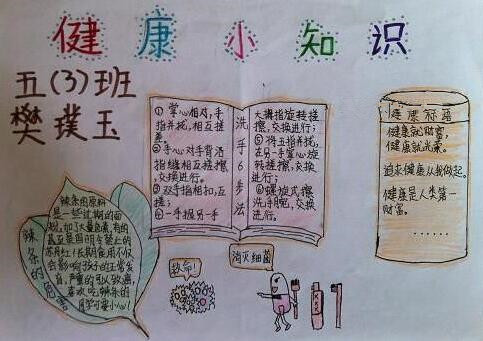 健康小知识
五(3)班
樊璞玉
①掌心相对,手
指并拢,相互搓
擦;
②手心对手背沿
指缝相互搓擦,
交换进行。
③双手指相扣,互
搓;
④一手握另一手
洗手6步法
大拇指旋转搓
擦,交换进行;
⑤将五指并拢,
在另一手掌心旋
转搓擦,交换
进行;
⑥螺旋式擦
洗手腕,交换
进行。
健康标语
健康就财富,
健康就光荣。
追求健康从我做起。
健康是人类第一
财富。
……
辣条的危害
辣条的原料
是一些过期的面
粉,加了大量色素,有的
甚至是国明令禁止的
苏丹红!长期食用不仅
会影响孩子的正常发
育,严重的可以致癌,
喜欢吃辣条的
同学可要小心!
救命!
消灭细菌